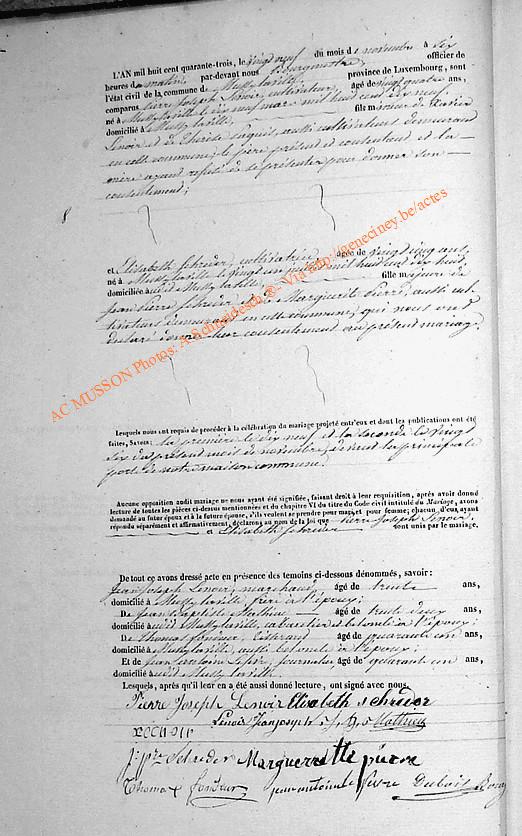 L'AN mil huit cent quarante-trois, le vingt neuf du mois de novembre à six
heures du matin par-devant nous Bourgmestre officier de
l'état civil de la commune de Mussy la ville, province de Luxembourg, sont
comparus Pierre Joseph Lenoir cultivateur, âgé de vingt quatre ans,
né à Mussy la ville le dix neuf mars mil huit cent dix neuf,
domicilié à Mussy la ville, fils majeur de
Lenoir et de aussi cultivateurs demeurant
en cette commune, le père présent et consentant et la
mère ayant refusé de se présenter pour donner son
consentement;
et Elisabeth Schreder, cultivatrice, âgée de vingt cinq ans,
né à Mussy la ville le vingt un mil huit cent dix huit,
domiciliée audit Mussy la ville, fille majeure de
Jean Pierre Schreder et de Marguerite Pierre, aussi cul-
tivateurs demeurant en cette commune, qui nous ont
déclaré donner leur consentement au présent mariage.
Lesquels nous ont requis de procéder à la célébration du mariage projeté entr'eux et dont les publications ont été
faites, Savoir: la première le dix neuf et la seconde le vingt
six du présent mois de novembre, devant la principale
porte de notre maison commune.
Aucune opposition audit mariage ne nous ayant été signifiée, faisant droit à leur requisition, après avoir donné
lecture de toutes les pièces ci-dessus mentionnées et du chapitre VI du titre du Code civil intitulé du Mariage, avons
demandé au futur époux et à la future épouse, s'ils veulent se prendre pour mari et pour femme; chacun d'eux ayant
répondu séparément et affirmativement, déclarons au nom de la loi que Pierre Joseph Lenoir
et Elisabeth Schreder sont unis par le mariage.
De tout ce avons dressé acte en présence des temoins ci-dessous dénommés, savoir:
Jean Joseph Lenoir, marchand, âgé de trente ans,
domicilié à Mussy la ville, frère à l'époux;
De Jean Baptiste Mathieu âgé de trente deux ans,
domicilié audit Mussy la ville, cabaretier et beau à l'époux;
De Thomas Tisserand âgé de quarante un ans,
domicilié à Mussy la ville, aussi à l'époux;
Et de Jean Antoine journalier âgé de quarante un ans,
domicilié audit Mussy la ville.
Lesquels, après qu'il leur en a été aussi donné lecture, ont signé avec nous.
Pierre Joseph Lenoir Elisabeth schreder
Lenoir Jean joseph J. B. Mathieu
J: prre Schreder Marguerette pierre
Thomas jean antoine Dubois Bourg
AC MUSSON Photos: A.Schneidesch © - Via http://geneciney.be/actes